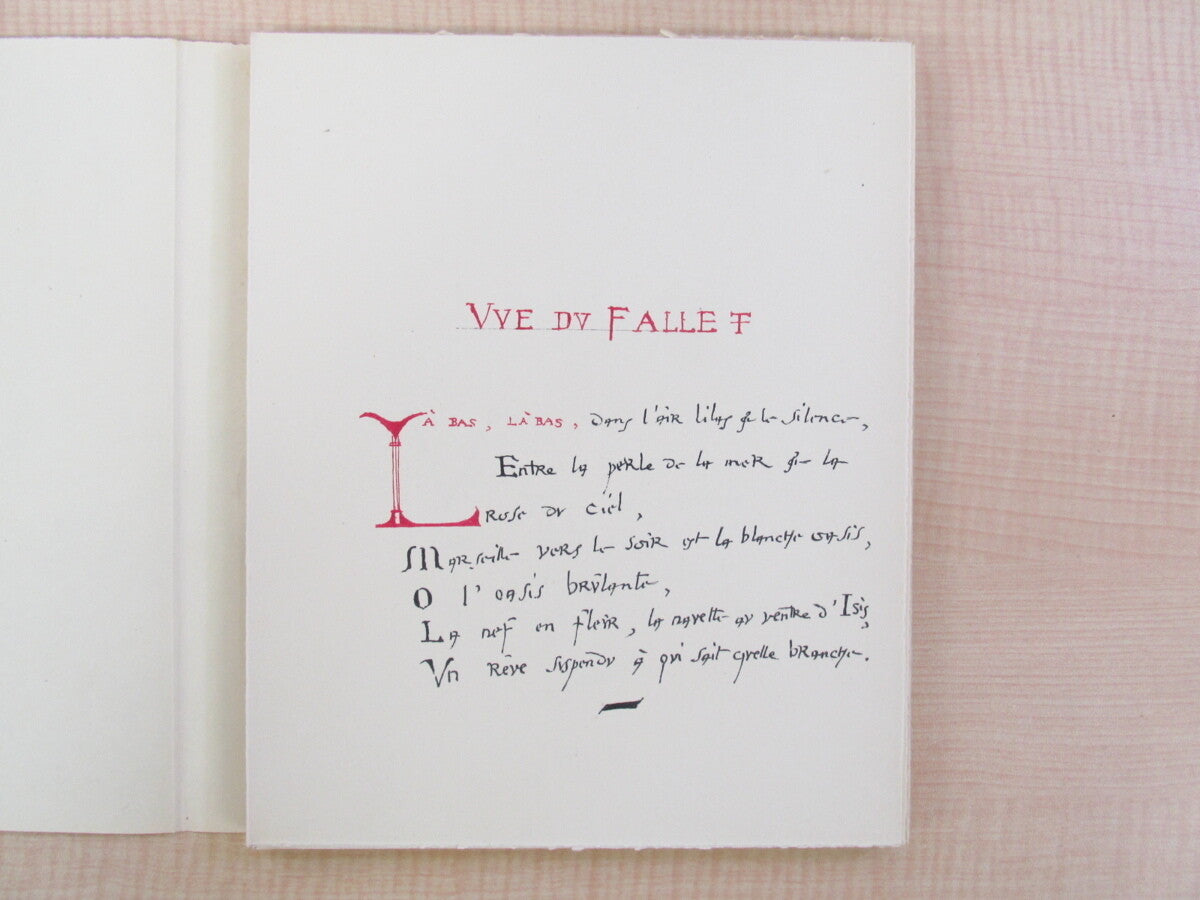 VVE DV FALLET
LÀ BAS, LÀ BAS, dans l'air lilas & le silence,
Entre la perle de la mer & la
rose dv ciel,
Marseille vers le soir est la blanche oasis,
O l'oasis brûlante,
La nef en fleur, la navette av ventre d'Isis,
Vn rêve svspendv à qvi sait qvelle branche.